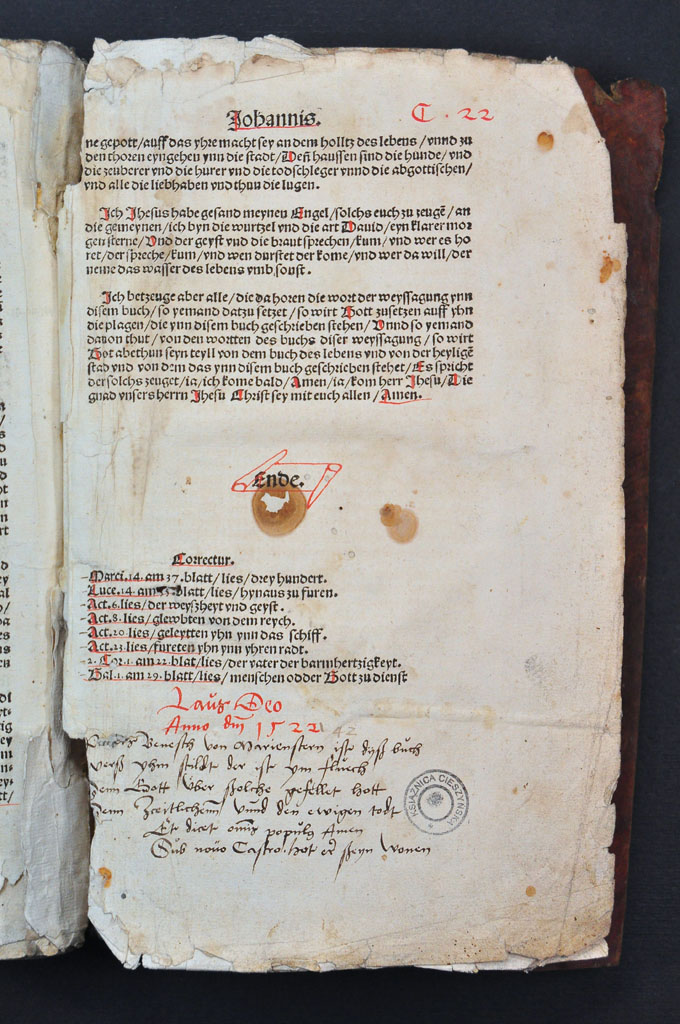 Johannis.
C . 22
ne gepott/auff das yhre macht sey an dem holltz des lebens/vnnd zu
den thoren eyngehen ynn die stadt/Deñ haussen sind die hunde/vnd
die zeuberer vnd die hurer vnd die todschleger vnnd die abgottischen/
vnd alle die liebhaben vnd thun die lugen.
Ich Jhesus habe gesand meynen Engel/solchs euch zu zeugē/an
die gemeynen/ich byn die wurtzel vnd die art Dauid/eyn klarer mor
gen sterne/Vnd der geyst vnd die braut sprechen/kum/vnd wer es ho
ret/der spreche/kum/vnd wen durstet der kome/vnd wer da will/der
neme das wasser des lebens vmb sonst.
Ich betzeuge aber alle/die da horen die wort der weyssagung ynn
disem buch/so yemand datzu setzet/so wirt Gott zusetzen auff yhn
die plagen/die ynn disem buch geschrieben stehen/Vnnd so yemand
dauon thut/von den wortten des buchs diser weyssagung/so wirt
Got abethun seyn teyll von dem buch des lebens vnd von der heyligē
stad vnd von dem das ynn disem buch geschrieben stehet/Es spricht
der solchs zeuget/ia/ich kome bald/Amen/ia/kom herr Jhesu/Die
gnad vnsers herrn Jhesu Christ sey mit euch allen/Amen.
Ende.
Correctur.
Marci.14.am 37.blatt/lies/drey hundert.
Luce.14.am blatt/lies/hynaus zu furen.
Act.6.lies/der weyßheyt vnd geyst.
Act.8.lies/glewbten von dem reych.
Act.20.lies/geleytten yhn ynn das schiff.
Act.23.lies/fureten yhn ynn yhren radt.
2.Cor.1.am 22.blat/lies/der vater der barmhertzigkeyt.
Gal.1.am 29.blatt/lies/menschen odder Gott zu dienst
Laus Deo
Anno dm̄ 1522
42
Benesch von Marienstern ist dyß buch
verß yhm stildt der ist ym fluech
Gott über solche gefellet hott
Zeittlichenn vnnd den ewigen todt
Et dicet omis populus Amen
Sub nouo Castro hot er seyn Wonen
KSIĄŻNICA CIESZYŃSKA